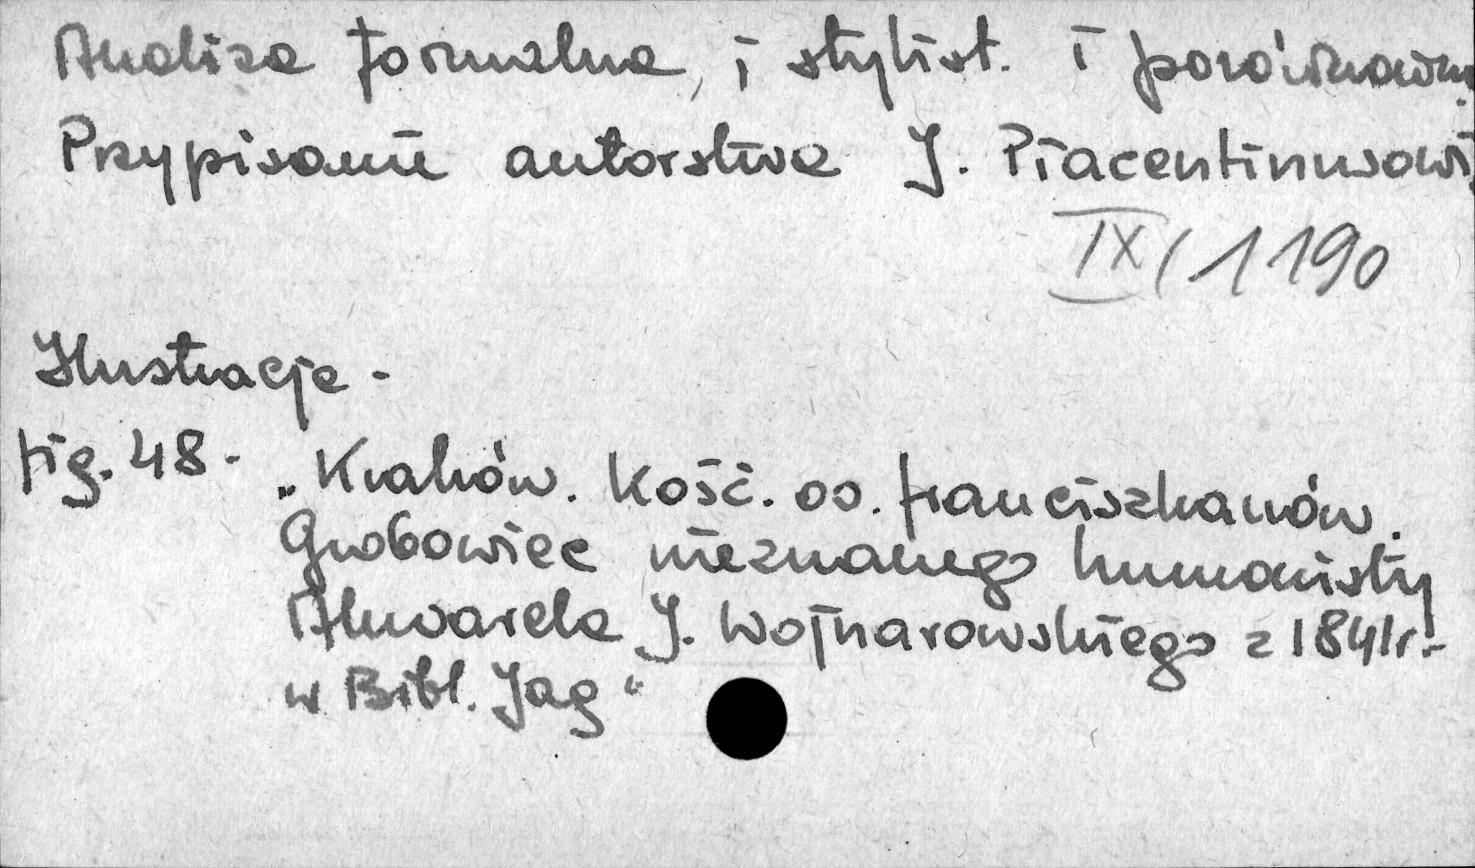 Analiza formalna, i stylist. i porównawcz.
Przypisanie autorstwa J. Piacentinusowi
IX/1190
Ilustracje -
fig. 48 - „Kraków. Kość. oo. franciszkanów.
Grobowiec nieznanego humanisty
Akwarela J. Wojnarowskiego z 1841r.-
w Bibl. Jag"